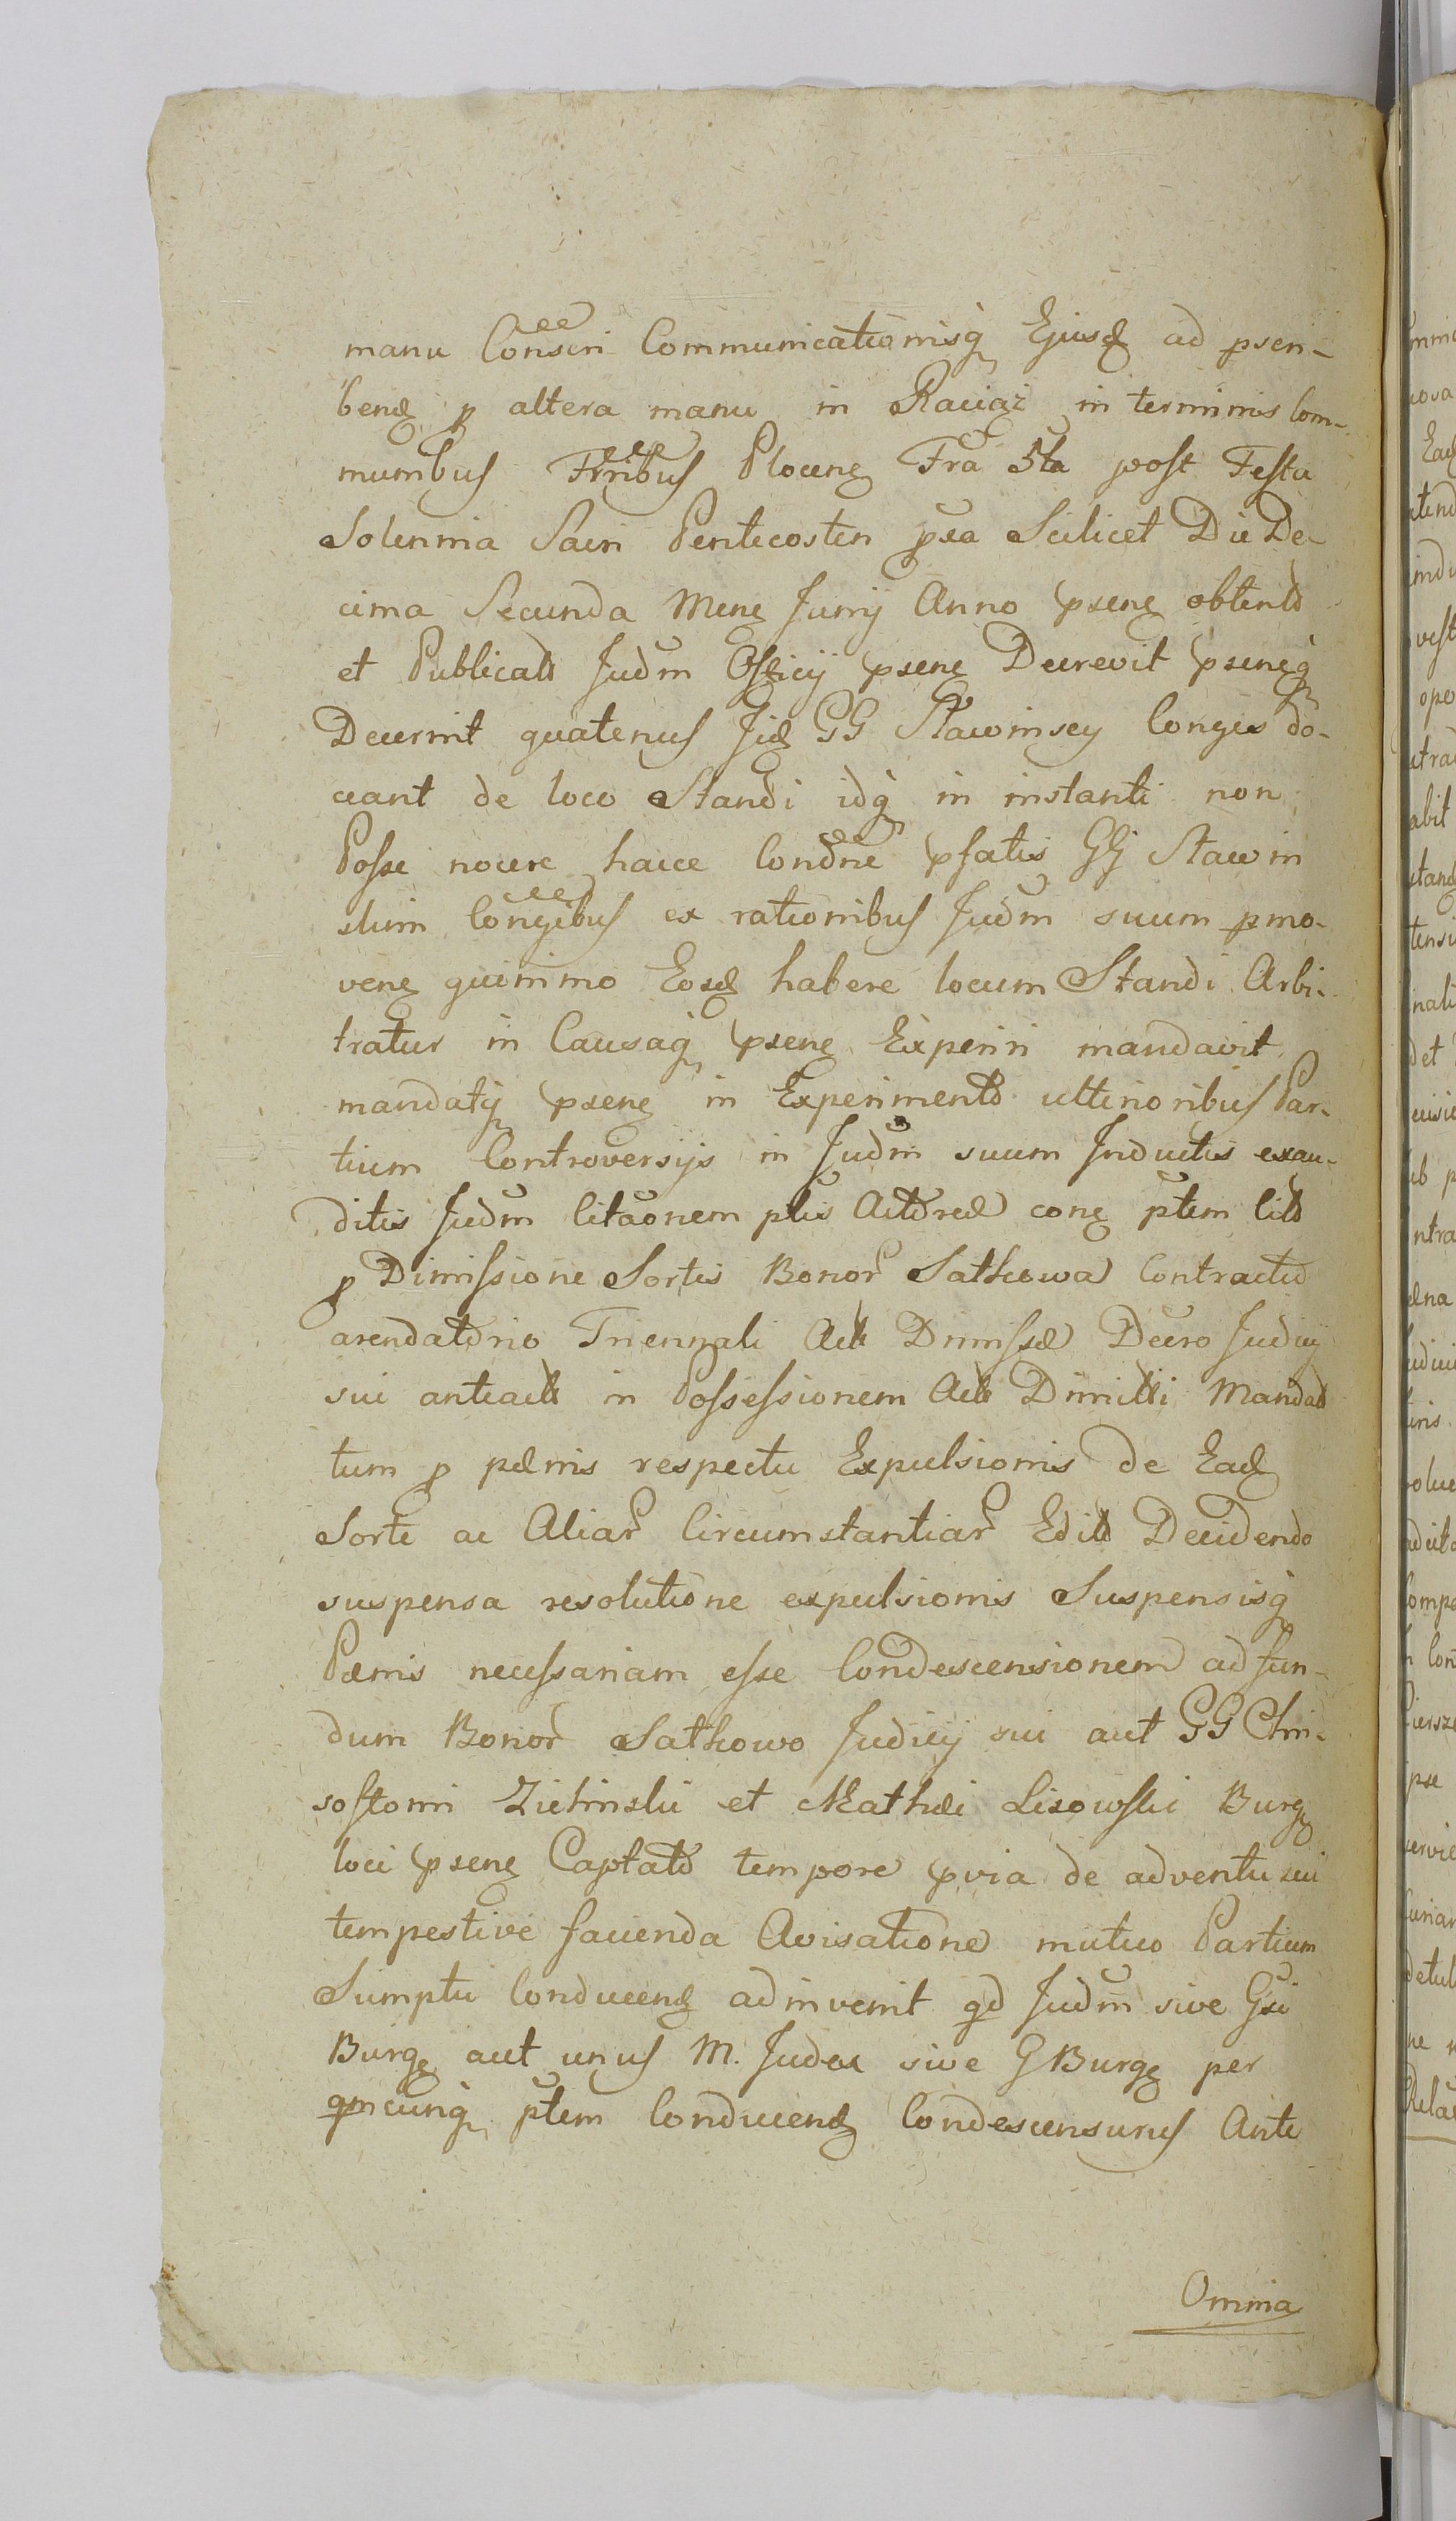 manu Conscri Communicationisq Ejusd ad pscri-
bend p altera manu in Raciąż in terminis Com-
munibus Trribus Plocens Fra 5ta post Festa
Solennia Sacri Pentecosten pxa Scilicet Die De-
cima Secunda Mens Junij Anno psens obtento
et Publicato Judm Officij psens Decrevit psensq
Decernit quatenus Jid GG Sławinscy Conges do-
ceant de loco Standi idq in instanti non
Posse nocere hacce Condne pfatis GG Sławin
skim Congibus ex rationibus Judm suum pmo-
vens quinimo Eosd habere locum Standi Arbi-
tratur in Causaq psens Experiri mandavit
mandatq psens in Experimento ulterioribus Par-
tium Controversijs in Judm suum Inductis exau-
ditis Judm Citaonem ptis Actorea cons ptem Cito
p Dimissione Sortis Bonor Satkowa Contractu
arendatorio Triennali Act Dimissa Decro Judicij
sui anteact in Possessionem Act Dimitti Mandat
tum p pænis respectu Expulsionis de Ead
Sorte ac Aliar Circumstantiar Edit Decidendo
suspensa resolutione expulsionis Suspensisq
Pænis necessariam esse Condescensionem ad fun-
dum Bonor Satkowo Judicij sui aut GG Chri-
sostomi Zielinski et Mathæi Lisowski Burg
loci psens Captato tempore pvia de adventu sui
tempestive facienda Avisatione mutuo Partium
Sumptu Conducend adinvenit qd Judm sive Gsi
Burg aut unus M. Judex sive G Burg per
qmcunq ptem Conducend Condescensurus Ante
Omnia